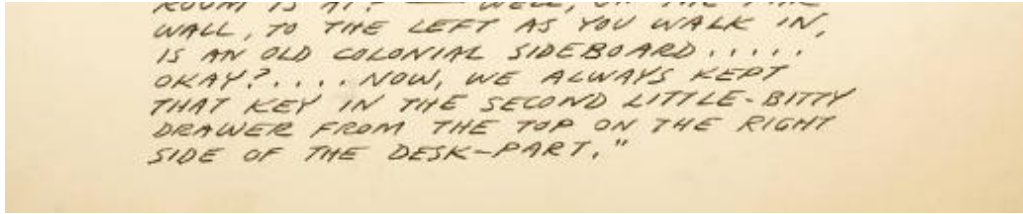 ROOM IS AT? — WELL, ON THE
WALL, TO THE LEFT AS YOU WALK IN,
IS AN OLD COLONIAL SIDEBOARD.....
OKAY?....NOW, WE ALWAYS KEPT
THAT KEY IN THE SECOND LITTLE-BITTY
DRAWER FROM THE TOP ON THE RIGHT
SIDE OF THE DESK-PART."